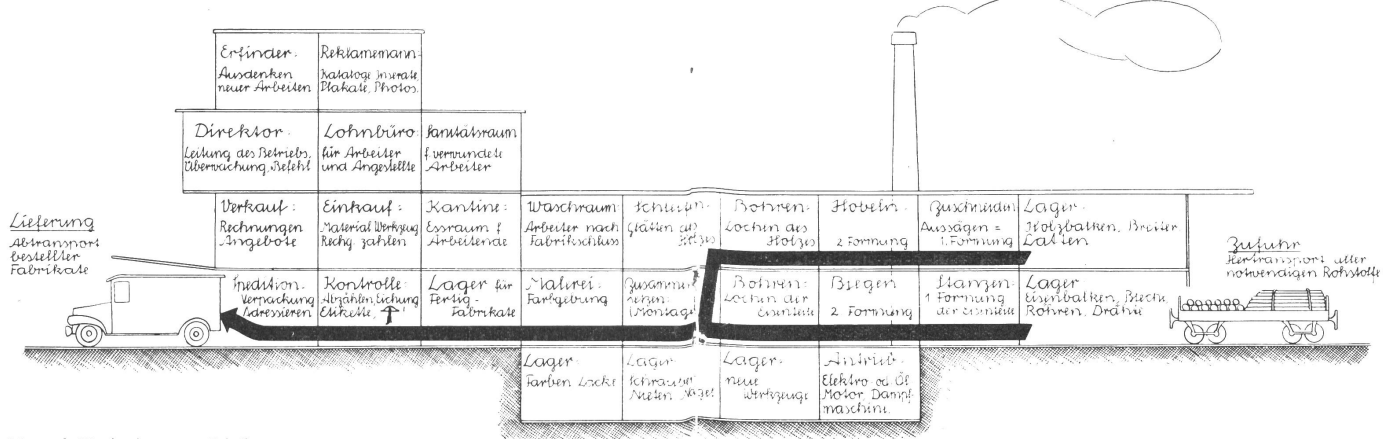 Erfinder:
Ausdenken
neuer Arbeiten
Reklamemann:
Kataloge, Inserate,
Plakate, Photos.
Direktor:
Leitung des Betriebs.
Überwachung, Befehl
Lohnbüro:
für Arbeiter
und Angestellte
Sanitätsraum
f. verwundete
Arbeiter
Verkauf:
Rechnungen
Angebote
Einkauf:
Material Werkzeug
Rechg. zahlen
Kantine:
Essraum f.
Arbeitende
Waschraum
Arbeiter nach
Fabrikschluss
Schleifen:
Glätten des
Holzes
Bohren:
Lochen des
Holzes
Hobeln:
2 Formung
Zuschneiden
Aussägen =
1. Formung
Lager:
Holzbalken, Bretter
Latten
Lieferung
Abtransport
bestellter
Fabrikate
Zufuhr
Hertransport aller
notwendigen Rohstoffe
Spedition:
Verpackung
Adressieren
Kontrolle:
Abzählen, Eichung
Etikette,
Lager für
Fertig-
Fabrikate
Malerei:
Farbgebung
Zusammen-
setzen:
(Montage)
Bohren:
Lochen der
Eisenteile
Biegen
2. Formung
Stanzen:
1 Formung
der Eisenteile
Lager
Eisenbalken, Bleche,
Röhren, Drähte
Lager:
Farben Lacke
Lager
Schrauben
Nieten Nägel
Lager:
neue
Werkzeuge
Antrieb:
Elektro- od. Öl
Motor, Dampf-
maschine.